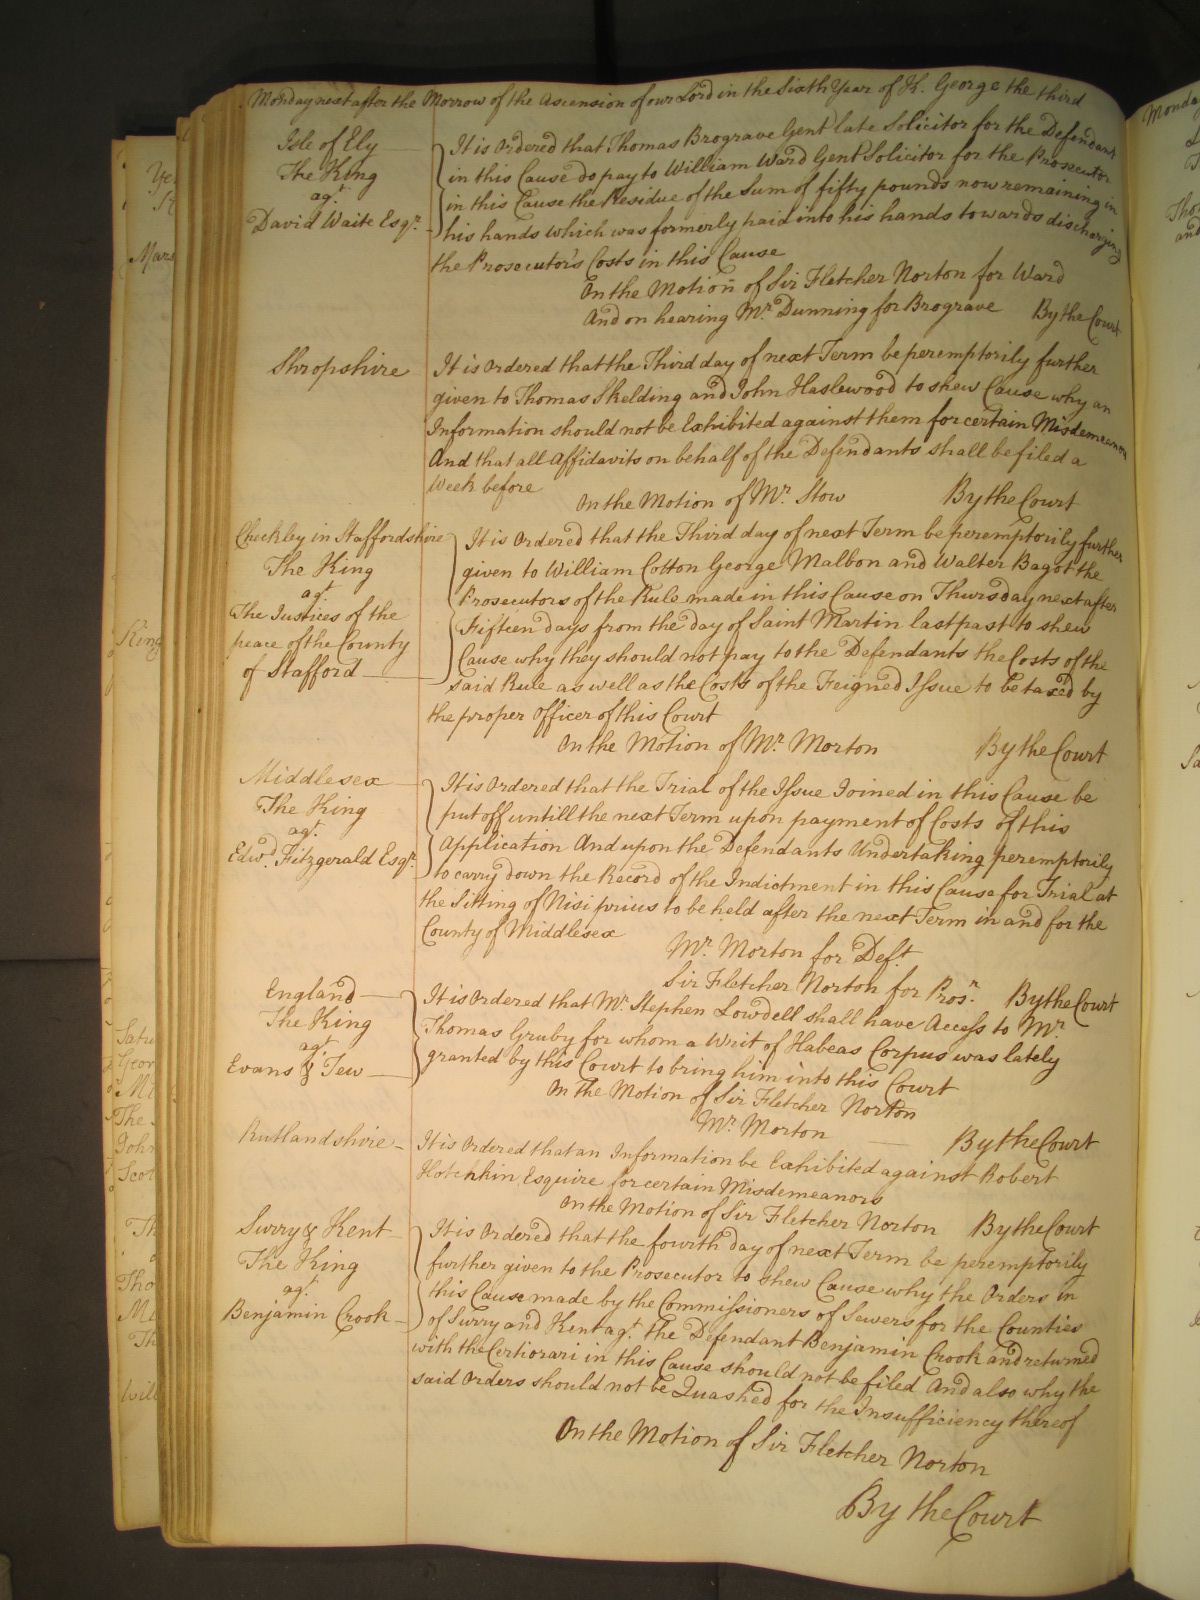 Monday next after the Morrow of the Ascension of our Lord in the Sixth Year of K. George the third
Isle of Ely
The King
agt.
David Waite Esqr.
It is Ordered that Thomas Brograve Gent late Solicitor for the Defendant
in this Cause do pay to William Ward Gent Solicitor for the Prosecutor
in this Cause the Residue of the Sum of fifty pounds now remaining in
his hands which was formerly paid into his hands towards discharging
the Prosecutor's Costs in this Cause
On the Motion of Sir Fletcher Norton for Ward
And on hearing Mr. Dunning for Brograve By the Court
Shropshire
It is Ordered that the Third day of next Term be peremptorily further
given to Thomas Skelding and John Haslewood to shew Cause why an
Information should not be Exhibited against them for certain Misdemeanors
And that all Affidavits on behalf of the Defendants shall be filed a
Week before
On the Motion of Mr. Stow By the Court
Checkley in Staffordshire
The King
agt.
The Justices of the
peace of the County
of Stafford
It is Ordered that the Third day of next Term be peremptorily further
given to William Cotton George Malbon and Walter Bagot the
Prosecutors of the Rule made in this Cause on Thursday next after
Fifteen days from the day of Saint Martin last past to shew
Cause why they should not pay to the Defendants the Costs of the
said Rule as well as the Costs of the Feigned Issue to be taxed by
the proper Officer of this Court
On the Motion of Mr. Morton By the Court
Middlesex
The King
agt.
Edwd. Fitzgerald Esqr.
It is Ordered that the Trial of the Issue Joined in this Cause be
put off untill the next Term upon payment of Costs of this
Application And upon the Defendants Undertaking peremptorily
to carry down the Record of the Indictment in this Cause for Trial at
the Sitting of Nisi prius to be held after the next Term in and for the
County of Middlesex
Mr. Morton for Deft.
Sir Fletcher Norton for Pros.r By the Court
England
The King
agt.
Evans & Tew
It is Ordered that Mr. Stephen Lowdell shall have Access to Mr.
Thomas Gruby for whom a Writ of Habeas Corpus was lately
granted by this Court to bring him into this Court
On the Motion of Sir Fletcher Norton
Mr. Morton By the Court
Rutlandshire
It is Ordered that an Information be Exhibited against Robert
Hotchkin Esquire for certain Misdemeanors
On the Motion of Sir Fletcher Norton By the Court
Surry & Kent
The King
agt.
Benjamin Crook
It is Ordered that the fourth day of next Term be peremptorily
further given to the Prosecutor to shew Cause why the Orders in
this Cause made by the Commissioners of Sewers for the Counties
of Surry and Kent agt. the Defendant Benjamin Crook and returned
with the Certiorari in this Cause should not be filed And also why the
said Orders should not be Quashed for the Insufficiency thereof
On the Motion of Sir Fletcher Norton
By the Court